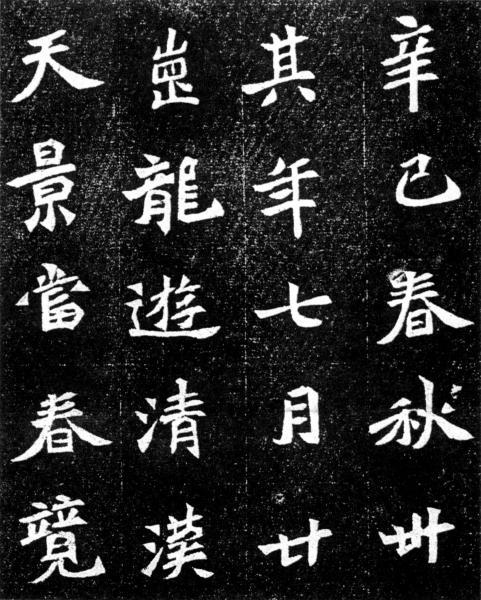 辛巳春秋卅
其年七月廿
龍遊清漢
天景當春競